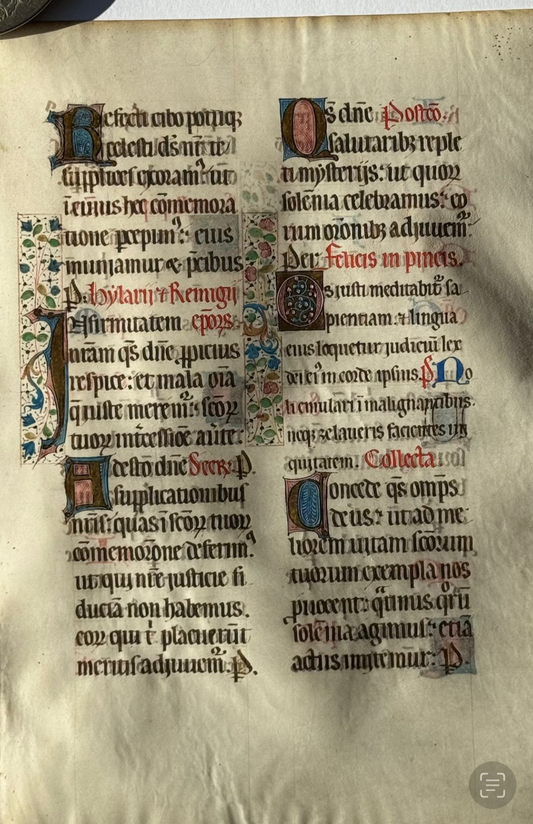 Refecti cibo potuqꝫ
celesti ds̄ nr̄ te
supplices exoram᷒ ut
in cuius hec cōmemora
tione ꝑcepim᷒: eius
muniamur & p̄cibus
P. hylarii ⁊ Remigii
Infirmitatem ep̄ors.
nr̄am qs̄ dn̄e ꝓpicius
respice: et mala oīa
q̄ iuste merem᷒: scōꝝ
tuoꝝ int̄cessiōe au̓te.
Adesto dn̄e Secr̄. P.
supplicationibus
nr̄is: quas ī scōꝝ tuoꝝ
cōmemorōne deferim᷒
ut qui nr̄e iusticie fi
duciā non habemus.
eoꝝ qui t̓ placuerūt
meritis adiuuem᷒. P.
Qs̄ dn̄e Postcō.
salutaribꝫ reple
ti mysterijs: ut quoꝝ
solēnia celebramus: eo
rum orōnibꝫ adiuuem᷒.
Per Felicis in pincis.
Os iusti meditabit᷒ sa
pientiam. ⁊ lingua
eius loquetur iudiciū lex
dei ei᷒ in corde ipsius. p̄s No
li emulari ī malignantibus.
neqꝫ zelaueris facientes in
quitatem. Collecta
Concede qs̄ omp̄s
deus: ut ad me
liorem uitam scōrum
tuorum exempla nos
ꝓuocent: q̄tinus q̄ꝝ
solēnia agimus: etiā
actus imitemur: P.